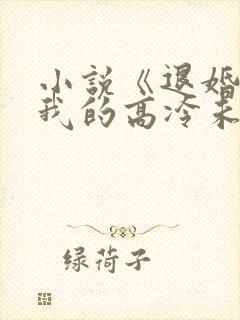 小说《退婚
我的高冷未
绿荷子